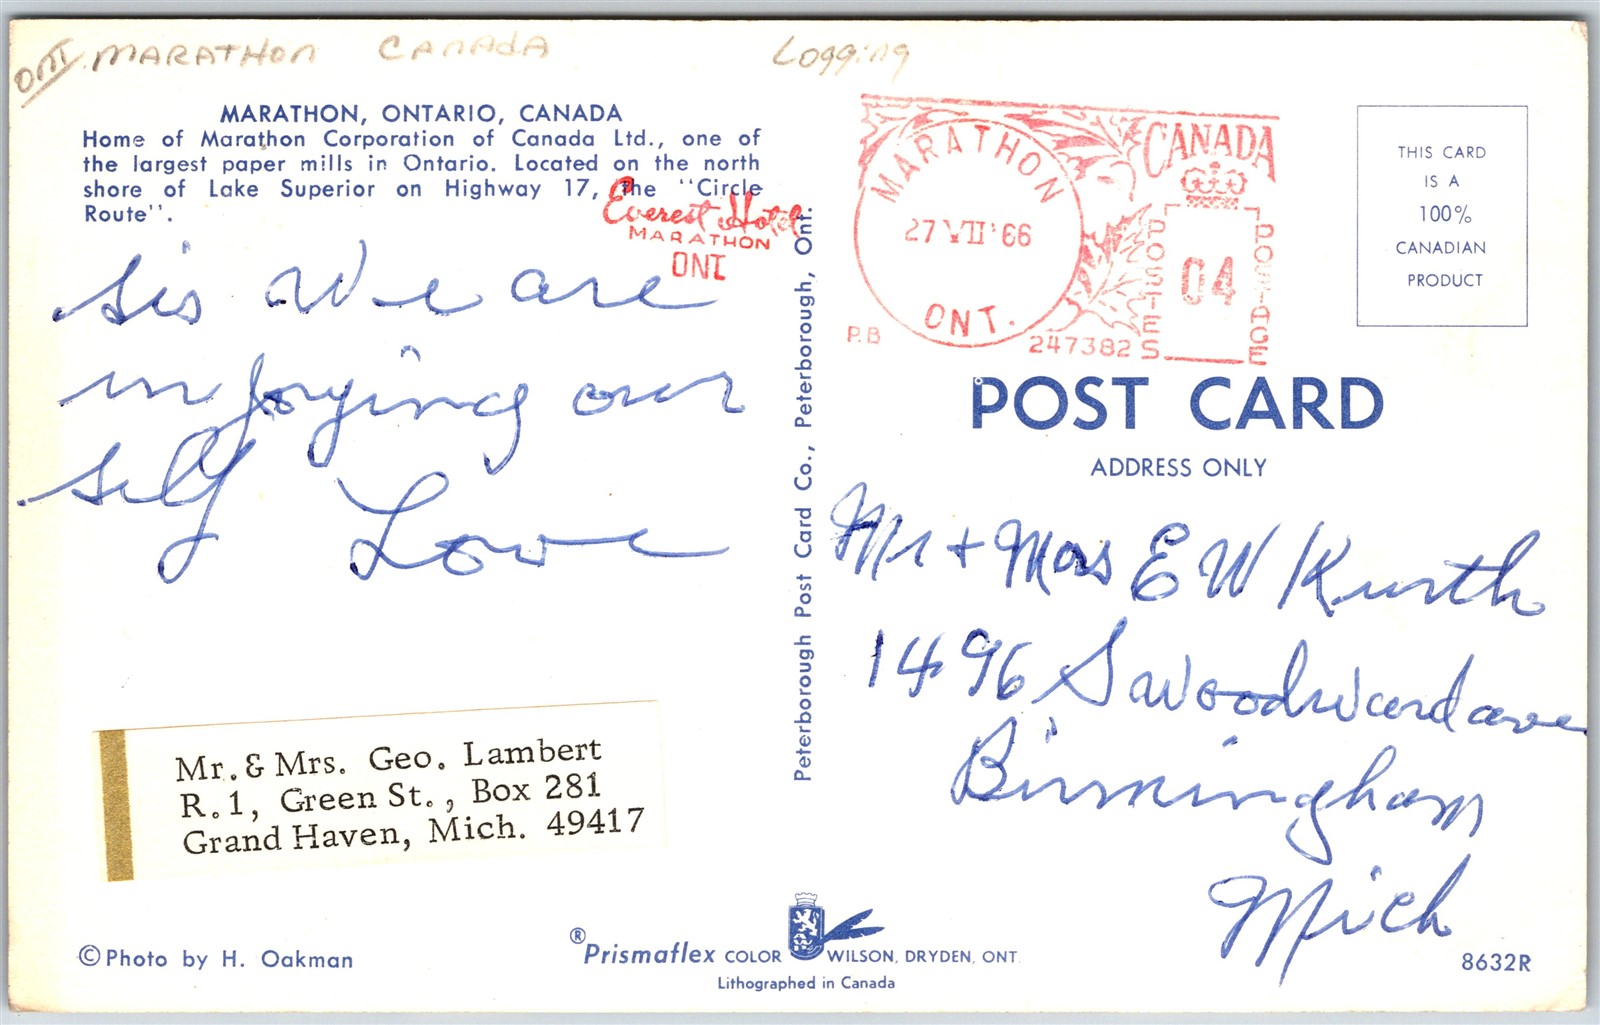 ONT. MARATHON CANADA
Logging
MARATHON, ONTARIO, CANADA
Home of Marathon Corporation of Canada Ltd., one of
the largest paper mills in Ontario. Located on the north
shore of Lake Superior on Highway 17, the "Circle
Route".
Everest Hotel
MARATHON
ONT
sis We are
injoying our
self
Love
Mr. & Mrs. Geo. Lambert
R. 1, Green St., Box 281
Grand Haven, Mich. 49417
© Photo by H. Oakman
Peterborough Post Card Co., Peterborough, Ont.
MARATHON
27 VII '66
ONT.
CANADA
POSTES
04
POSTAGE
P.B
247382
THIS CARD
IS A
100%
CANADIAN
PRODUCT
POST CARD
ADDRESS ONLY
Mr + Mrs E W Kurth
1496 S Woodward ave
Birmingham
Mich
® Prismaflex COLOR WILSON, DRYDEN, ONT.
Lithographed in Canada
8632R